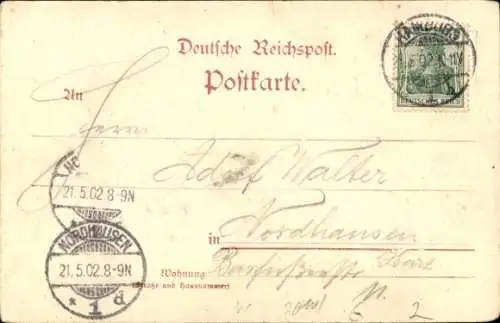 Deutsche Reichspost.
Postkarte.
HAMBURG
DEUTSCHES REICH
An
Herrn
Adolf Walter
21.5.02.8-9N
in Nordhausen
NORDHAUSEN
21.5.02.8-9N
* 1 d
Harz
Wohnung
(Straße und Hausnummer)
2